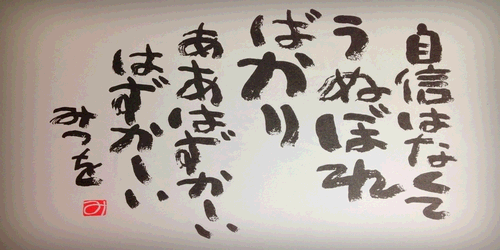 自信はなくて
うぬぼれ
ばかり
ああはずかしい
はずかしい
みつを
み